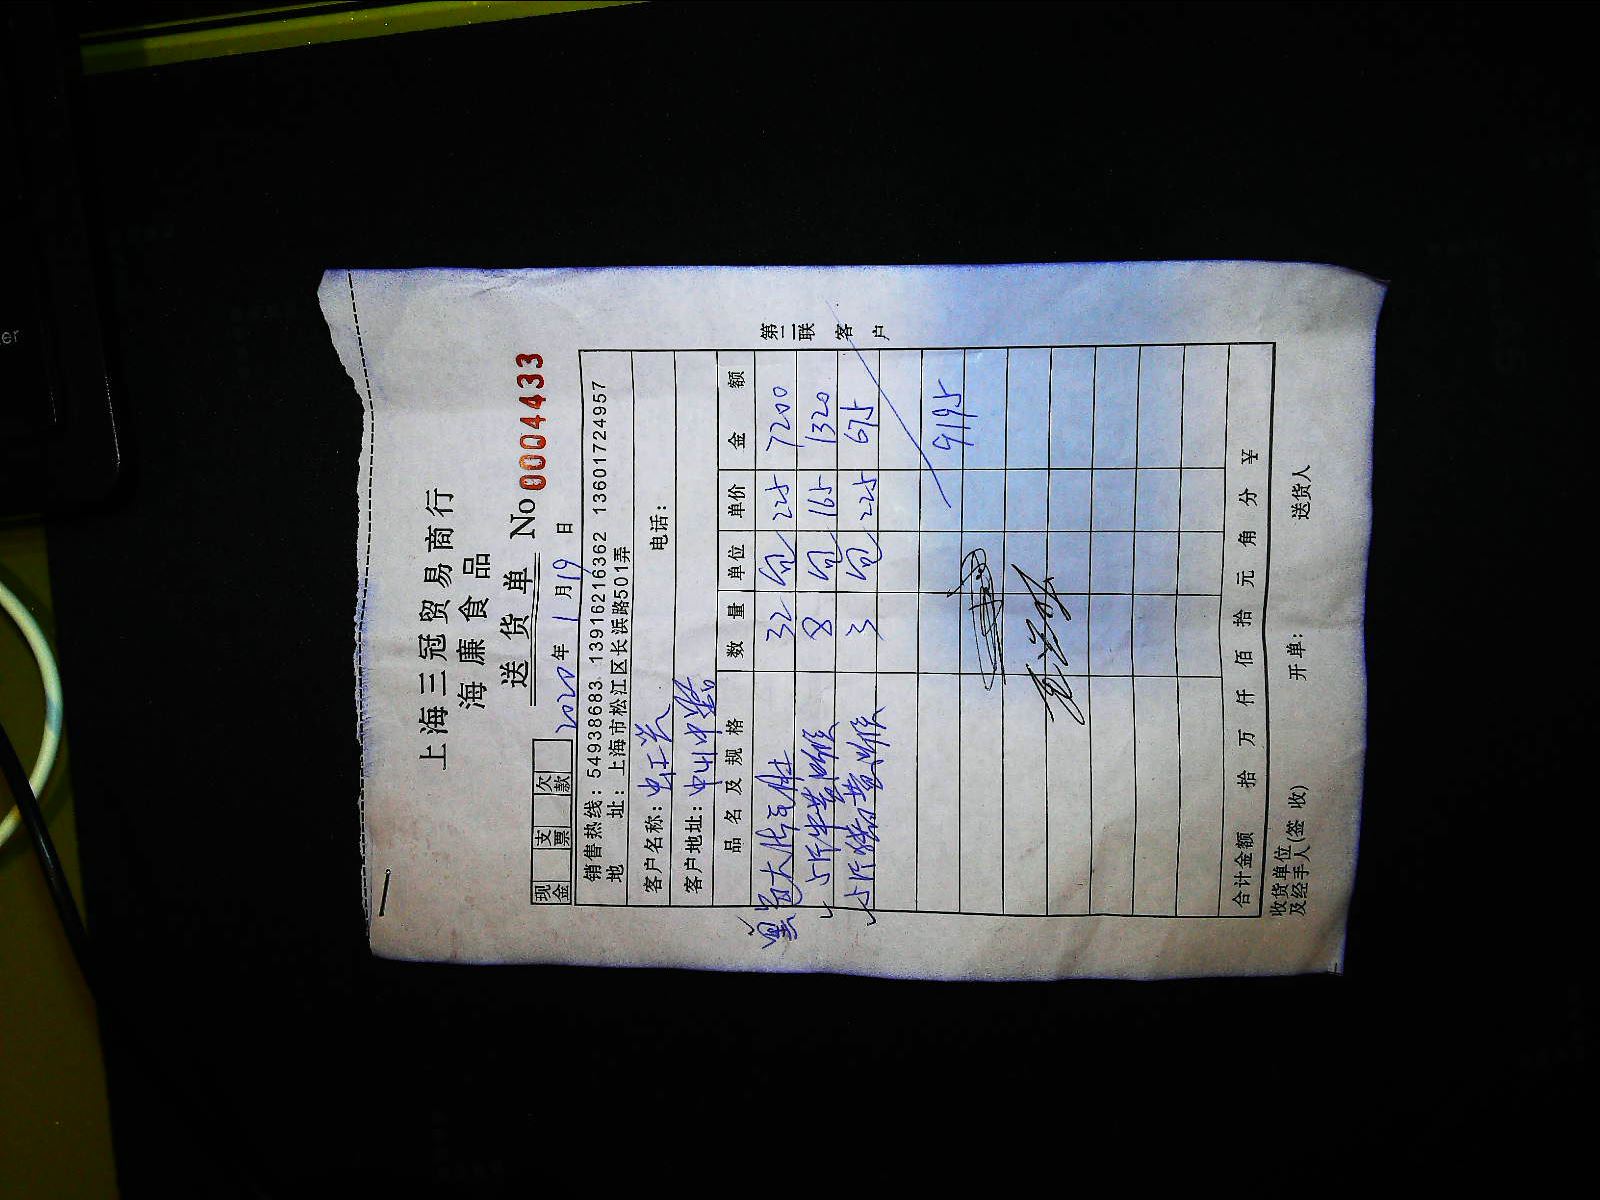 上海三冠贸易商行
海廉食品
送货单 No 0004433
现金 支票 欠款
2020年1月19日
销售热线: 54938683 13916216362 13601724957
地 址: 上海市松江区长浜路501弄
客户名称: 电话:
客户地址:
品名及规格 数量 单位 单价 金额
32 包 225 7200
8 包 165 1320
3 包 225 675
9195
合计金额 拾 万 仟 佰 拾 元 角 分 ¥
收货单位及经手人(签收) 开单: 送货人
第二联 客户
er